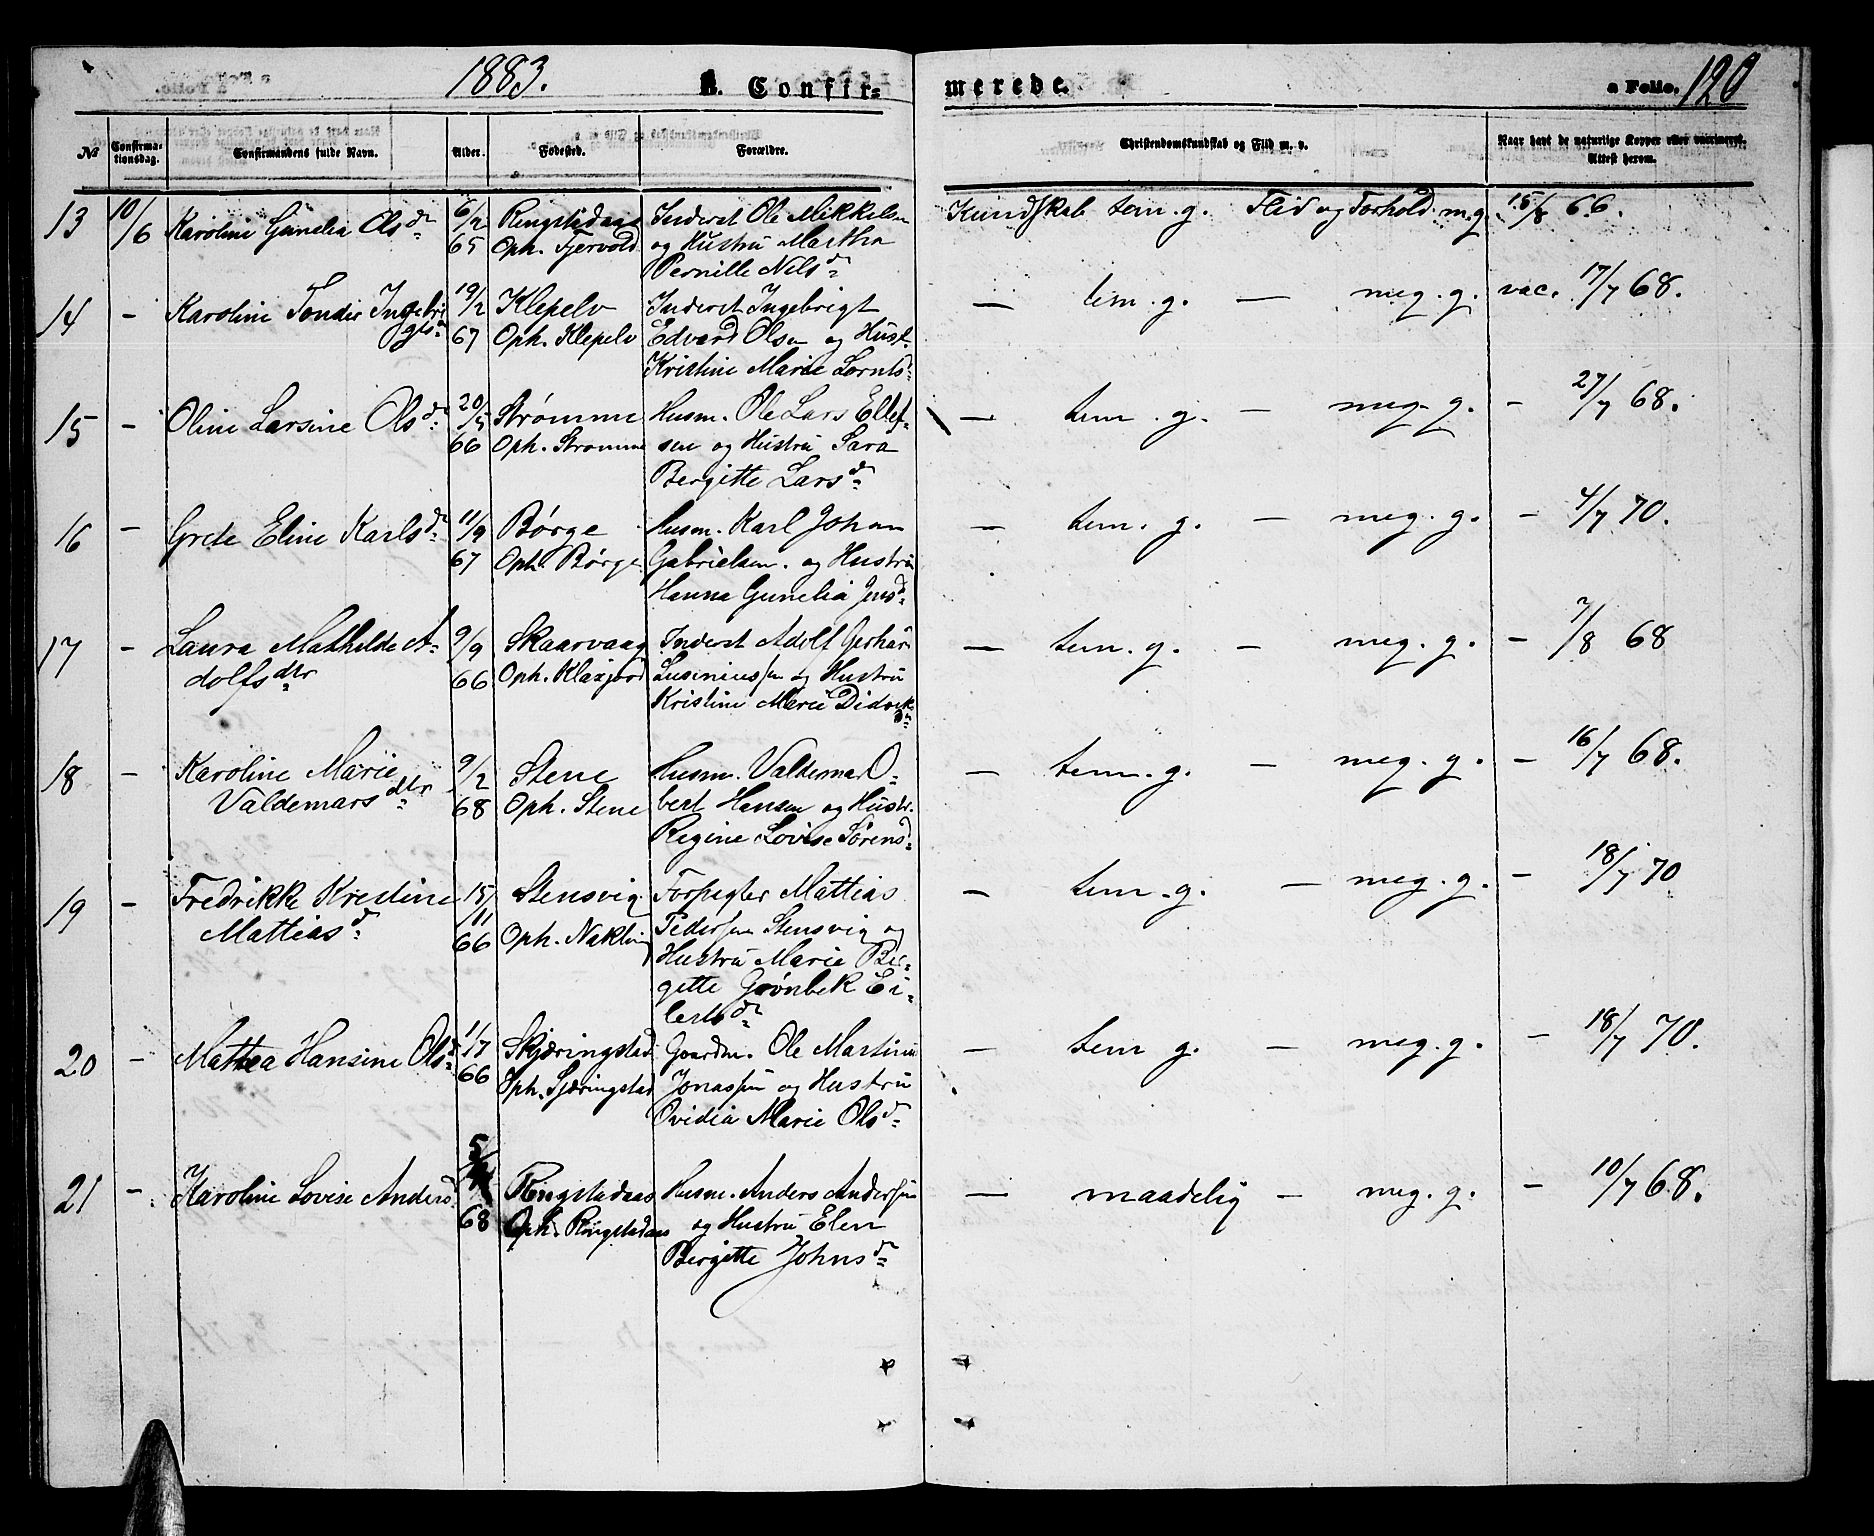 1883. A. Confir= merede. a Folio. 120
№ Confirmationsdag. Confirmandens fulde Navn. Alder. Fødested. Forældre. Christendomskundskab og Flid m. v. Naar havt de naturlige Kopper eller vaccineret. Attest herom.
13 10/6 Karoline Gunelia Olsdr 6/2 Ringstadaas Inderst Ole Mikkelsen Kundskab tem. g. Flid og Forhold. m.g. 15/8 66.
65 Oph. Fjervold og Hustru Martha
Pernille Nilsdr
14 - Karoline Tonder Ingebri 19/2 Klepelv Inderst Ingebrigt - tem. g. - meg. g. vac. 17/7 68.
gtsdr 67 Oph. Klepelv Edvard Olsen og Hust.
Kristine Marie Lorntsd
15 - Oline Larsine Olsdr 20/5 Strømme Husm. Ole Lars Ellef= - tem. g. - meg. g. - 27/7 68.
66 Oph. Strømme sen og Hustru Sara
Bergitte Larsdr
16 - Grete Eline Karlsdr 11/9 Børge Husm. Karl Johan - tem. g. - meg. g. - 4/7 70.
67 Oph. Børge Gabrielsen. og Hustru
Hanna Gunelia Jensdr
17 - Laura Mathilde A= 9/9 Skaarvaag Inderst Adolf Gerhard - tem. g. - meg. g. - 7/8 68
dolfsdtr 66 Oph. Klaxjord Lusiniussen og Hustru
Kristine Marie Didriksdr
18 - Karoline Marie 9/2 Stene Husm. Valdemar O= - tem. g. - meg. g. - 16/7 68.
Valdemarsdtr 68 Oph. Stene bert Hansen og Hustr.
Regine Lovise Sørensd
19 - Fredrikke Kristine 15/11 Stensvig Forpagter Mattias - tem. g. - meg. g. - 18/7 70
Mattiasdr 66 Oph. Pedersen Stensvig og
Hustru Marie Ber=
gette Grønbek Ei=
lertsdr
20 - Mattea Hansine Olsd 1/7 Skjæringstad Gaardm. Ole Martin - tem g. - meg. g. - 18/7 70.
66 Oph. Sjæringstad Jonassen og Hustru
Ovidia Marie Olsdr
21 - Karoline Lovise Anders 5/ Ringstadaas Husm. Anders Andersen - maadelig - meg. g. - 10/7 68.
68 Oph. Ringstadaas og Hustru Elen
Bergitte Johnsdr